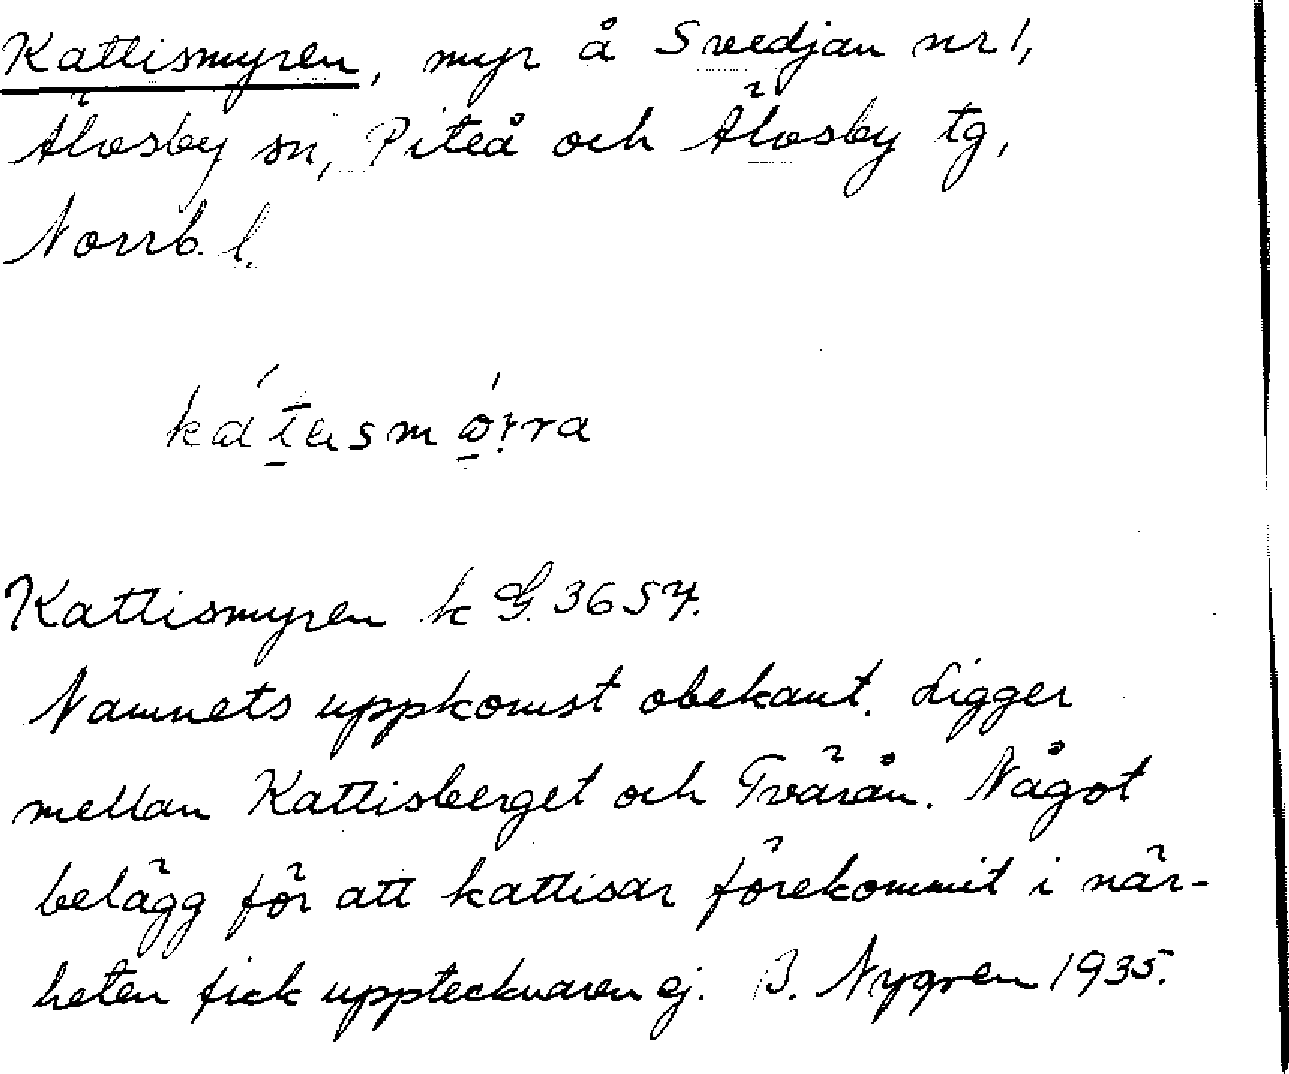 Kattismyren, myr å Svedjan nr 1,
Älvsby sn, Piteå och Älvsby tg,
Norrb. l.
Kattismyren k G. 3657.
Namnets uppkomst obekant. Ligger
mellan Kattisberget och Tvärån. Något
belägg för att kattisar förekommit i när-
heten fick upptecknaren ej. B. Nygren 1935.